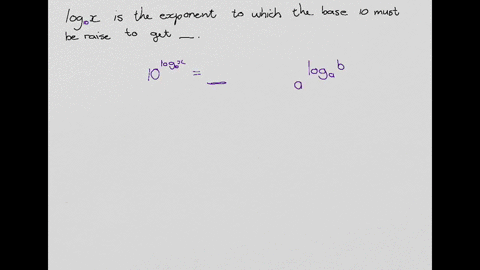 log₁₀x is the exponent to which the base 10 must
be raise to get __.
10^log₁₀x = __ a^logₐb